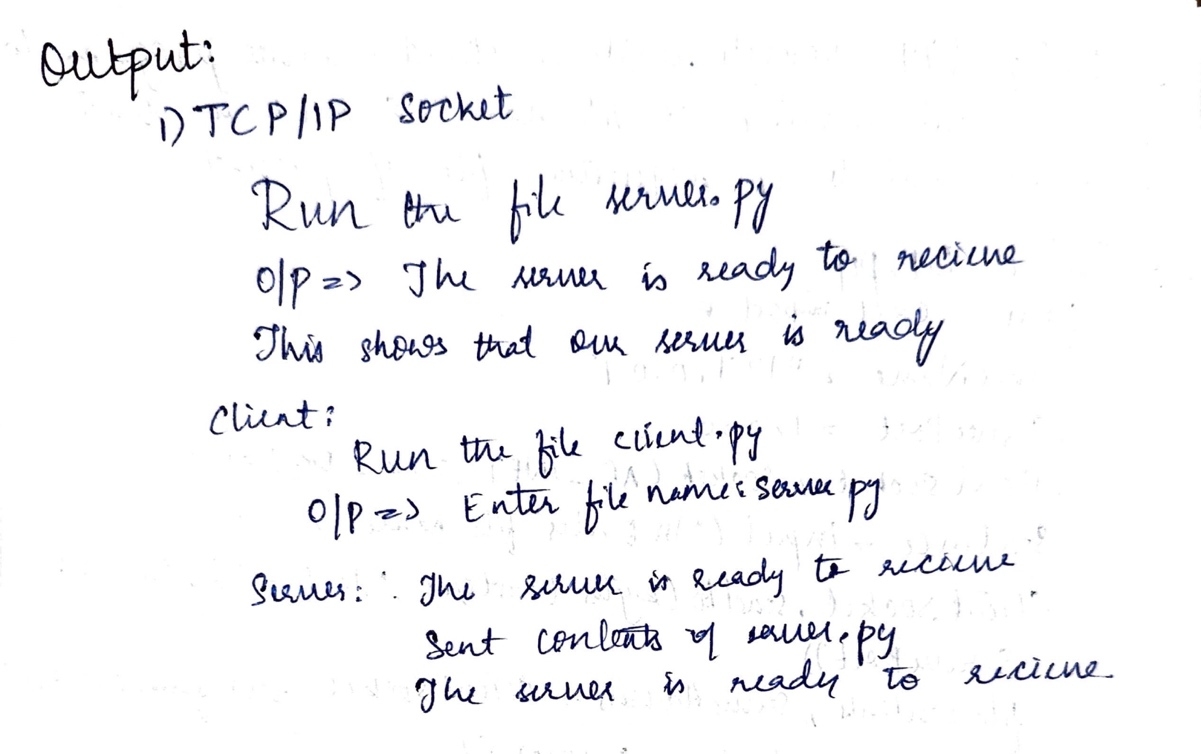 Output:
1) TCP/IP Socket
Run the file server.py
O/P => The server is ready to recieve
This shows that our server is ready
Client:
Run the file client.py
O/P => Enter file name: server py
Server: The server is ready to recieve
Sent contents of server.py
The server is ready to recieve